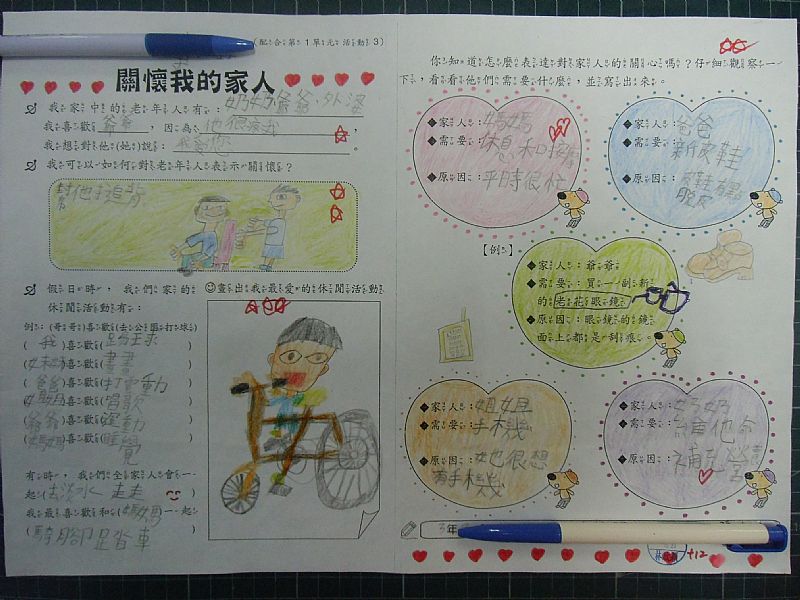 (配合第1單元活動3)
關懷我的家人
我家中的老年人有：奶奶、爺爺、外婆
我喜歡爺爺，因為他很疼我，
我想對他(她)說：我愛您。
我可以如何對老年人表示關懷？
幫他打追背
假日時，我們家的休閒活動有：
例：(哥哥)喜歡(去公園打球)
(我)喜歡(踢球)
(妹妹)喜歡(畫畫)
(爸爸)喜歡(打電動)
喜歡(唱歌)
(爺爺)喜歡(運動)
(媽媽)喜歡(睡覺)
有時，我們全家人會一起(去淡水走走)
我最喜歡和(媽媽)一起(騎腳踏車)
畫出我最愛的休閒活動
你知道怎麼表達對家人的關心嗎？仔細觀察一
下，看看他們需要什麼，並寫出來。
◆家人：媽媽
◆需要：休息和按摩
◆原因：平時很忙
◆家人：爸爸
◆需要：新皮鞋
◆原因：皮鞋有點脫皮
【例】
◆家人：爺爺
◆需要：買一副新
的老花眼鏡
◆原因：眼鏡的鏡
面上都是刮痕。
◆家人：姐姐
◆需要：手機
◆原因：她很想
有手機
◆家人：奶奶
◆需要：維他命
◆原因：補充營養
3年
+12